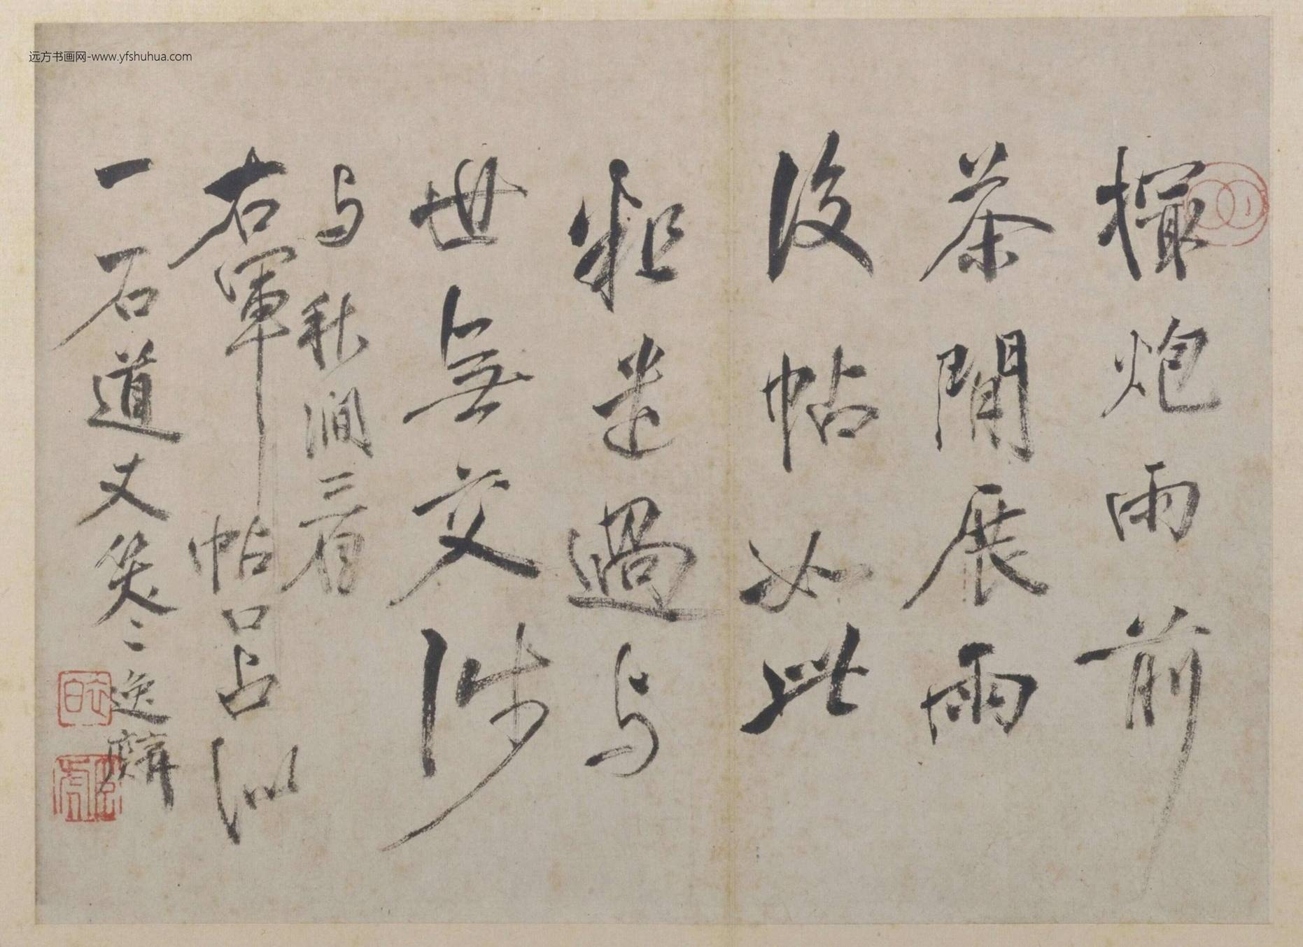 远方书画网-www.yfshuhua.com
撮炮雨前
茶閒展雨
後帖如此
粗遣過与
世無交涉
与秋澗三看
右軍帖口占似
一石道丈笑〻逸